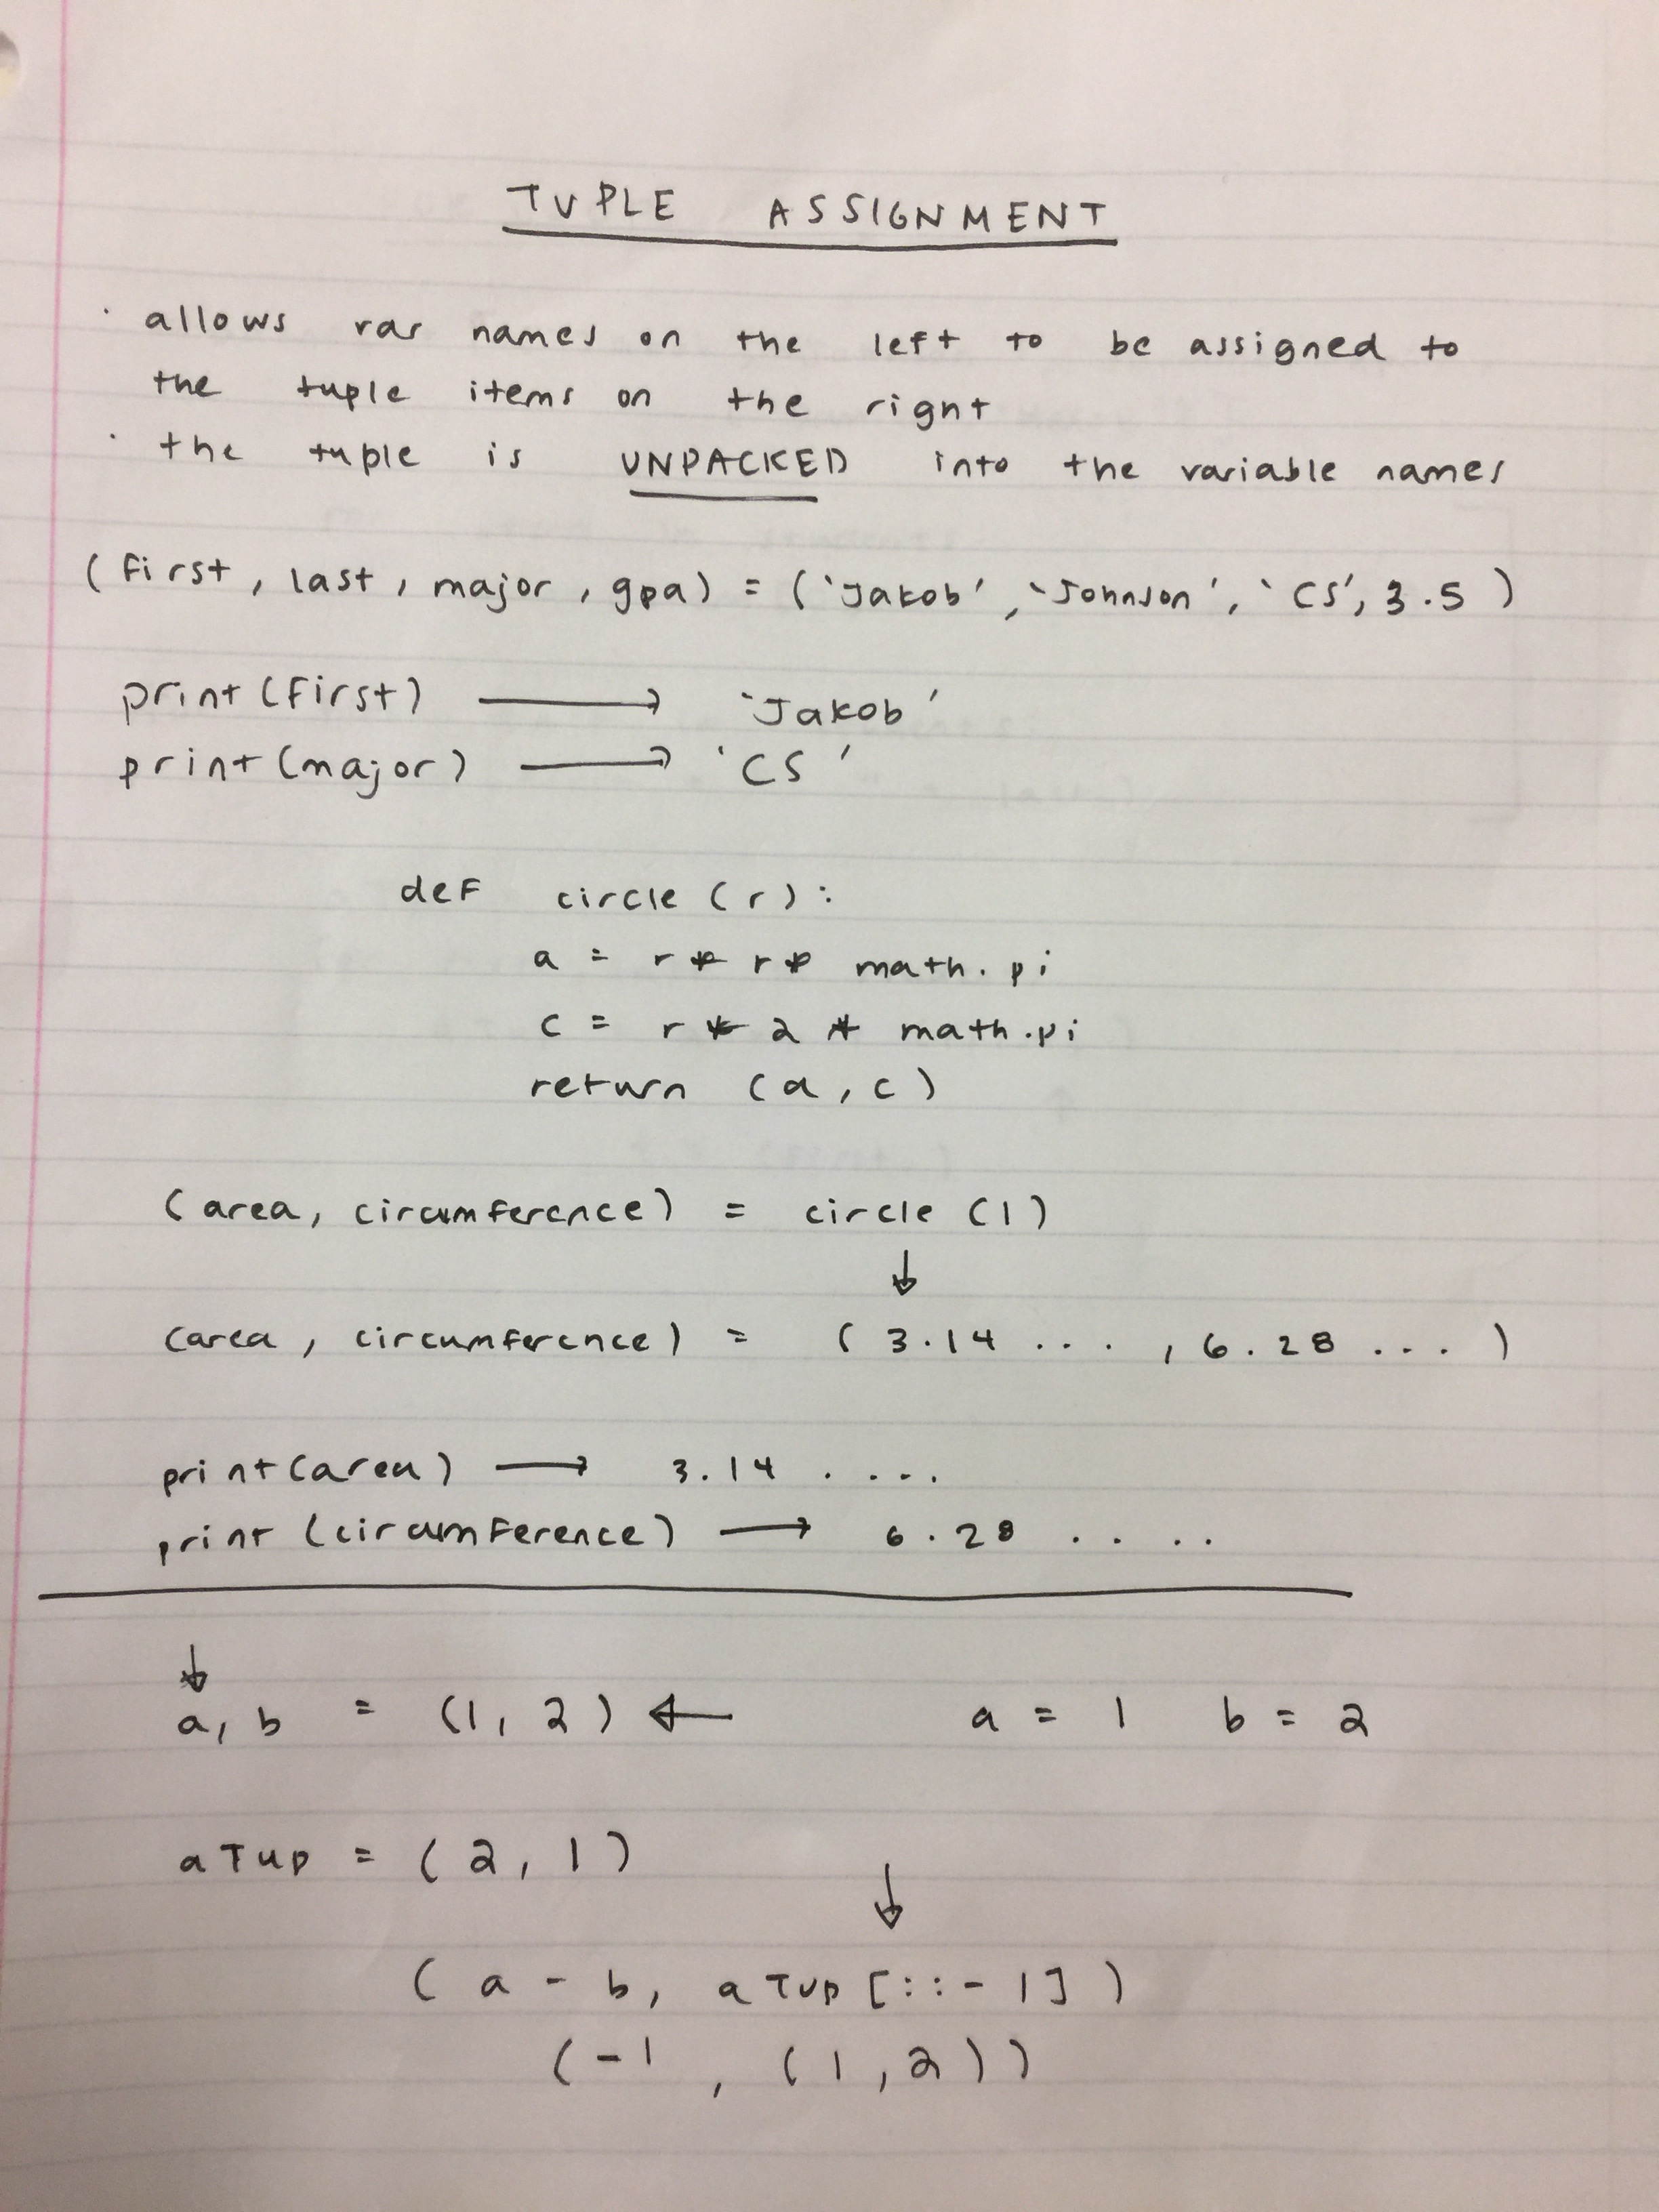 TUPLE ASSIGNMENT
· allows var names on the left to be assigned to
the tuple items on the right
· the tuple is UNPACKED into the variable names
(first, last, major, gpa) = ('Jakob', 'Johnson', 'CS', 3.5)
print(first) ⟶ 'Jakob'
print(major) ⟶ 'CS'
def circle(r):
a = r * r * math.pi
c = r * 2 * math.pi
return (a, c)
(area, circumference) = circle(1)
↓
(area, circumference) = (3.14 ... , 6.28 ... )
print(area) ⟶ 3.14 ....
print(circumference) ⟶ 6.28 ....
↓
a, b = (1, 2) ← a = 1 b = 2
aTup = (2, 1)
↓
(a - b, aTup[::-1])
(-1, (1,2))